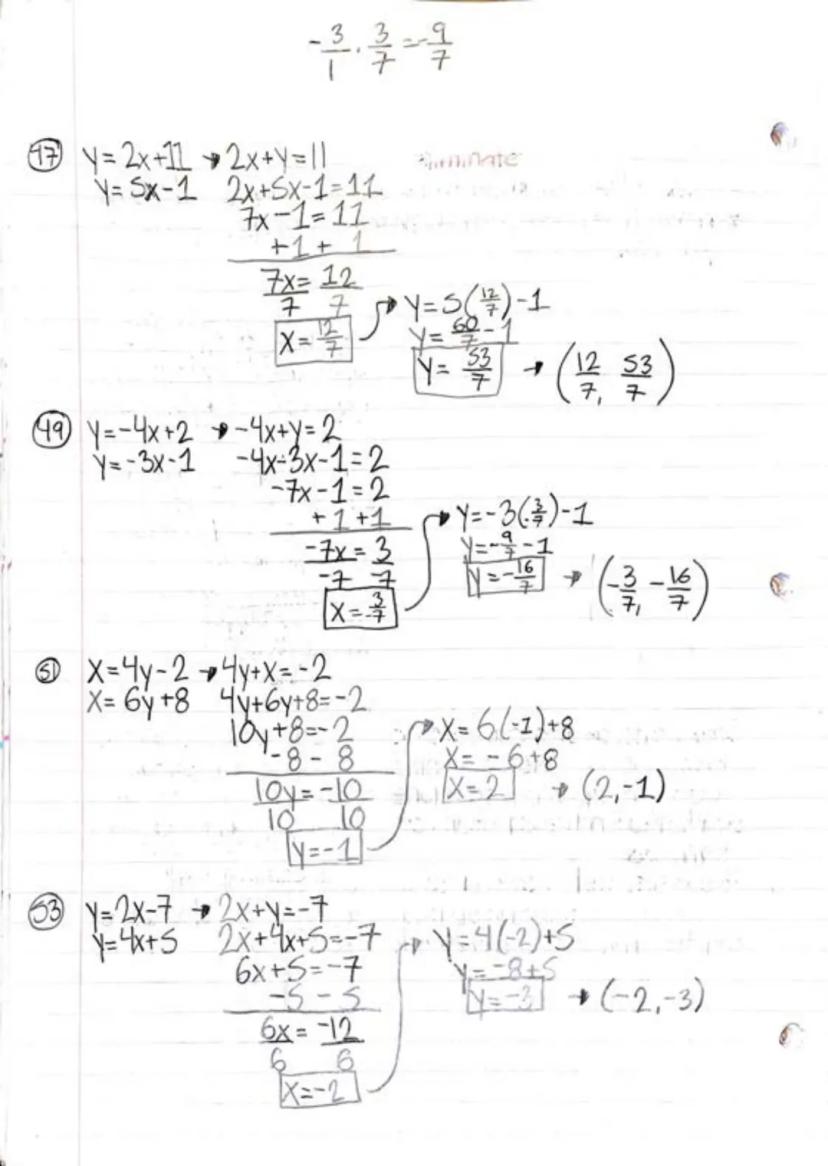 -3/1 · 3/7 = -9/7
47 y=2x+11 → 2x+y=11
y=5x-1 2x+5x-1=11
7x-1=11
+1 + 1
7x = 12
7 7
x=12/7
y=5(12/7)-1
y=60/7-1
y=53/7 → (12/7, 53/7)
49 y=-4x+2 → -4x+y=2
y=-3x-1 -4x-3x-1=2
-7x-1=2
+1 +1
-7x=3
-7 -7
x=-3/7
y=-3(-3/7)-1
y=-9/7-1
y=-16/7 → (-3/7, -16/7)
51 x=4y-2 → 4y+x=-2
x=6y+8 4y+6y+8=-2
10y+8=-2
-8 - 8
10y=-10
10 10
y=-1
x=6(-1)+8
x=-6+8
x=2 → (2,-1)
53 y=2x-7 → 2x+y=-7
y=4x+5 2x+4x+5=-7
6x+5=-7
-5 - 5
6x=-12
6 6
x=-2
y=4(-2)+5
y=-8+5
y=-3 → (-2,-3)